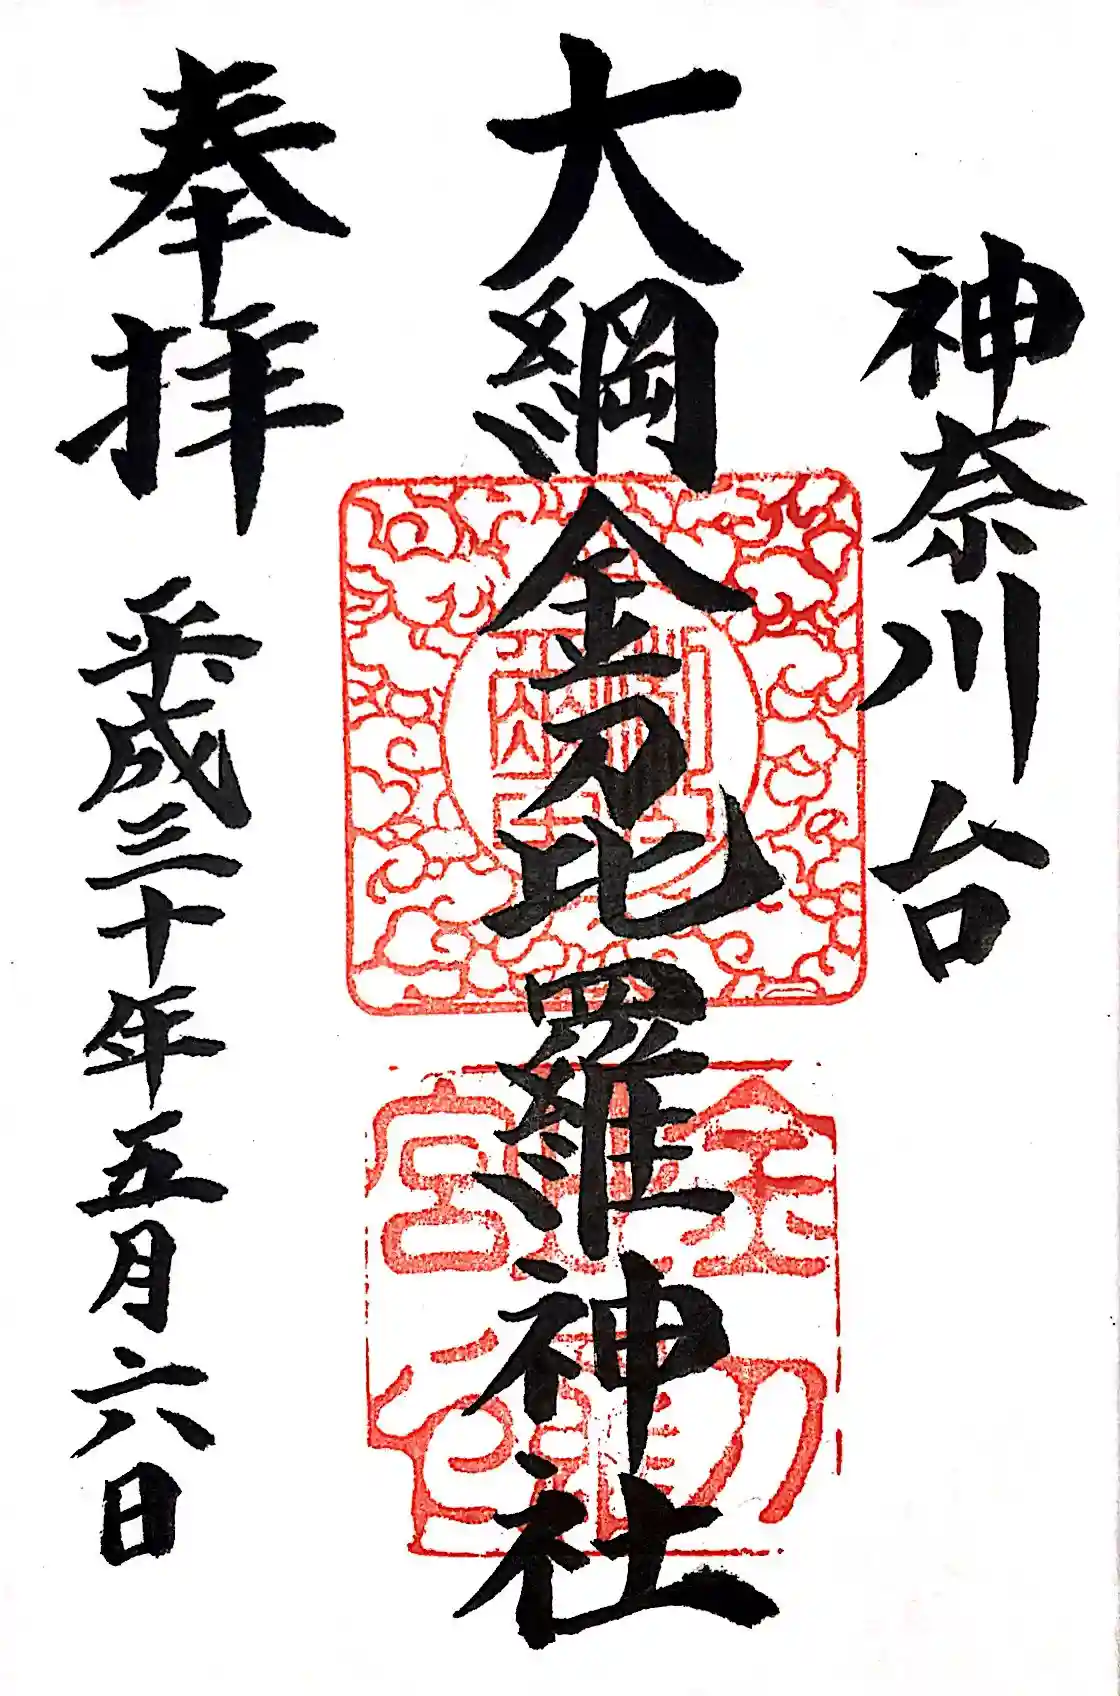 神奈川台
大綱金刀毗羅神社
奉拝 平成三十年五月六日